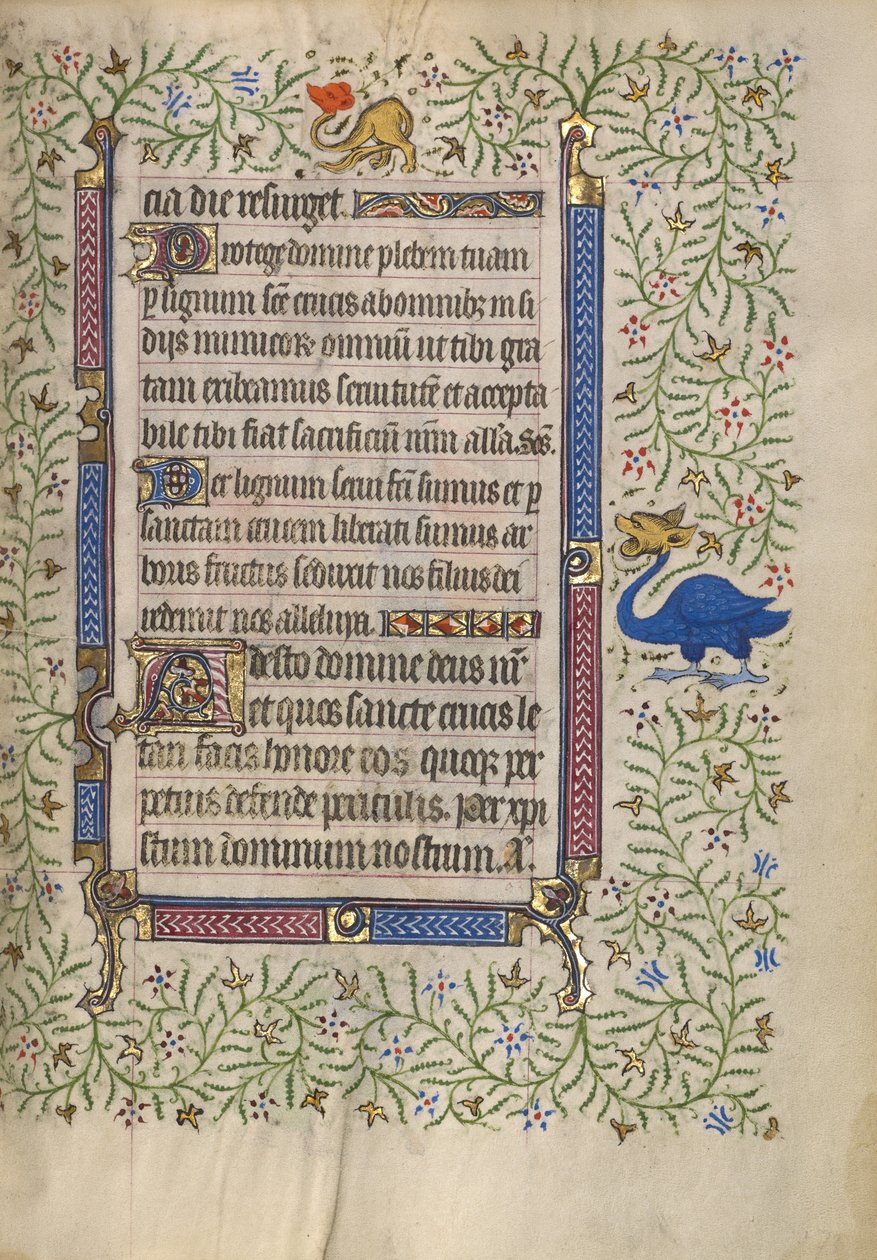 cia die resurget.
Protege domine plebem tuam
p lignum sce crucis ab omnibꝫ insi
dijs inimicoꝝ omniū ut tibi gra
tam exibeamus seruitutē et accepta
bile tibi fiat sacrificiū nrm alla. Scs.
Per lignum serui fcti sumus et p
sanctam crucem liberati sumus ar
boris fructus seduxit nos filius dei
redemit nos alleluya.
Adesto domine deus nr
et quos sancte crucis le
tari facis honore eos quoqꝫ per
petuis defende periculis. Per xpi
stum dominum nostrum. A.